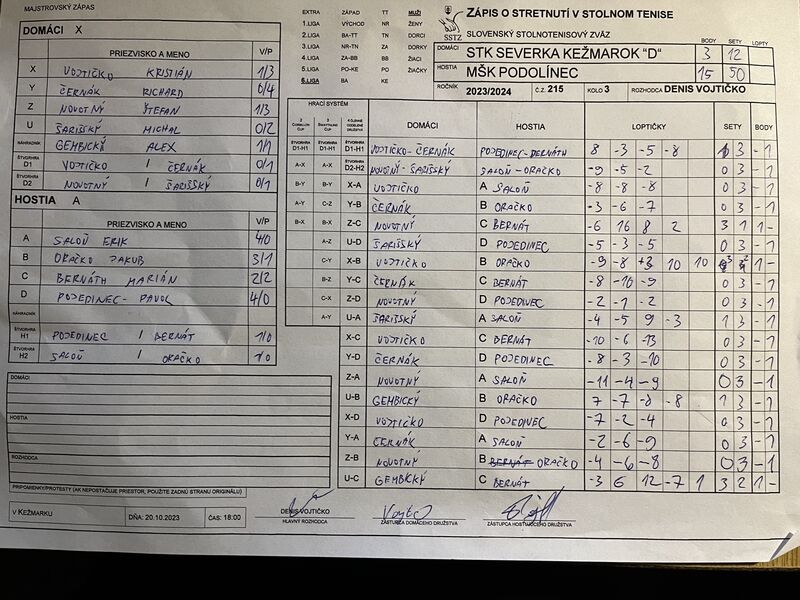 MAJSTROVSKÝ ZÁPAS
DOMÁCI X
PRIEZVISKO A MENO V/P
X VOJTIČKO KRISTIÁN 1/3
Y ČERNÁK RICHARD 0/4
Z NOVOTNÝ ŠTEFAN 1/3
U ŠARIŠSKÝ MICHAL 0/2
NÁHRADNÍK GEMBICKÝ ALEX 1/1
ŠTVORHRA D1 VOJTIČKO / ČERNÁK 0/1
ŠTVORHRA D2 NOVOTNÝ / ŠARIŠSKÝ 0/1
HOSTIA A
PRIEZVISKO A MENO V/P
A SALOŇ ERIK 4/0
B ORAČKO JAKUB 3/1
C BERNÁTH MARIÁN 2/2
D POJEDINEC PAVOL 4/0
NÁHRADNÍK
ŠTVORHRA H1 POJEDINEC / BERNÁT 1/0
ŠTVORHRA H2 SALOŇ / ORAČKO 1/0
DOMÁCI:
HOSTIA:
ROZHODCA:
PRIPOMIENKY/PROTESTY (AK NEPOSTAČUJE PRIESTOR, POUŽITE ZADNÚ STRANU ORIGINÁLU)
V KEŽMARKU DŇA: 20.10.2023 ČAS: 18:00
EXTRA ZÁPAD TT MUŽI
1.LIGA VÝCHOD NR ŽENY
2.LIGA BA-TT TN DORCI
3.LIGA NR-TN ZA DORKY
4.LIGA ZA-BB BB ŽIACI
5.LIGA PO-KE PO ŽIAČKY
6.LIGA BA KE
SSTZ
ZÁPIS O STRETNUTÍ V STOLNOM TENISE
SLOVENSKÝ STOLNOTENISOVÝ ZVÄZ
BODY SETY LOPTY
DOMÁCI: STK SEVERKA KEŽMAROK "D" 3 12
HOSTIA: MŠK PODOLÍNEC 15 50
ROČNÍK 2023/2024 Č.Z. 215 KOLO 3 ROZHODCA DENIS VOJTIČKO
HRACÍ SYSTÉM
DOMÁCI HOSTIA LOPTIČKY SETY BODY
ŠTVORHRA D1-H1 ŠTVORHRA D1-H1 ŠTVORHRA D1-H1 VOJTIČKO-ČERNÁK POJEDINEC-BERNÁTH 8 -3 -5 -8 1 3 -1
A-X A-X ŠTVORHRA D2-H2 NOVOTNÝ-ŠARIŠSKÝ SALOŇ-ORAČKO -9 -5 -2 0 3 -1
B-Y B-Y X-A VOJTIČKO A SALOŇ -8 -8 -8 0 3 -1
A-Y C-Z Y-B ČERNÁK B ORAČKO -3 -6 -7 0 3 -1
B-X B-X Z-C NOVOTNÝ C BERNÁT -6 16 8 2 3 1 1-
A-Z U-D ŠARIŠSKÝ D POJEDINEC -5 -3 -5 0 3 -1
C-Y X-B VOJTIČKO B ORAČKO -9 -8 +3 10 10 1-
B-Z Y-C ČERNÁK C BERNÁT -8 -10 -9 0 3 -1
C-X Z-D NOVOTNÝ D POJEDINEC -2 -1 -2 0 3 -1
A-Y U-A ŠARIŠSKÝ A SALOŇ -4 -5 9 -3 1 3 -1
X-C VOJTIČKO C BERNÁT -10 -6 -13 0 3 -1
Y-D ČERNÁK D POJEDINEC -8 -3 -10 0 3 -1
Z-A NOVOTNÝ A SALOŇ -11 -4 -9 0 3 -1
U-B GEMBICKÝ B ORAČKO 7 -7 -8 -8 1 3 -1
X-D VOJTIČKO D POJEDINEC -7 -2 -4 0 3 -1
Y-A ČERNÁK A SALOŇ -2 -6 -9 0 3 -1
Z-B NOVOTNÝ B BERNÁT ORAČKO -4 -6 -8 0 3 -1
U-C GEMBICKÝ C BERNÁT -3 6 12 -7 1 3 2 1-
DENIS VOJTIČKO
HLAVNÝ ROZHODCA ZÁSTUPCA DOMÁCEHO DRUŽSTVA ZÁSTUPCA HOSŤUJÚCEHO DRUŽSTVA